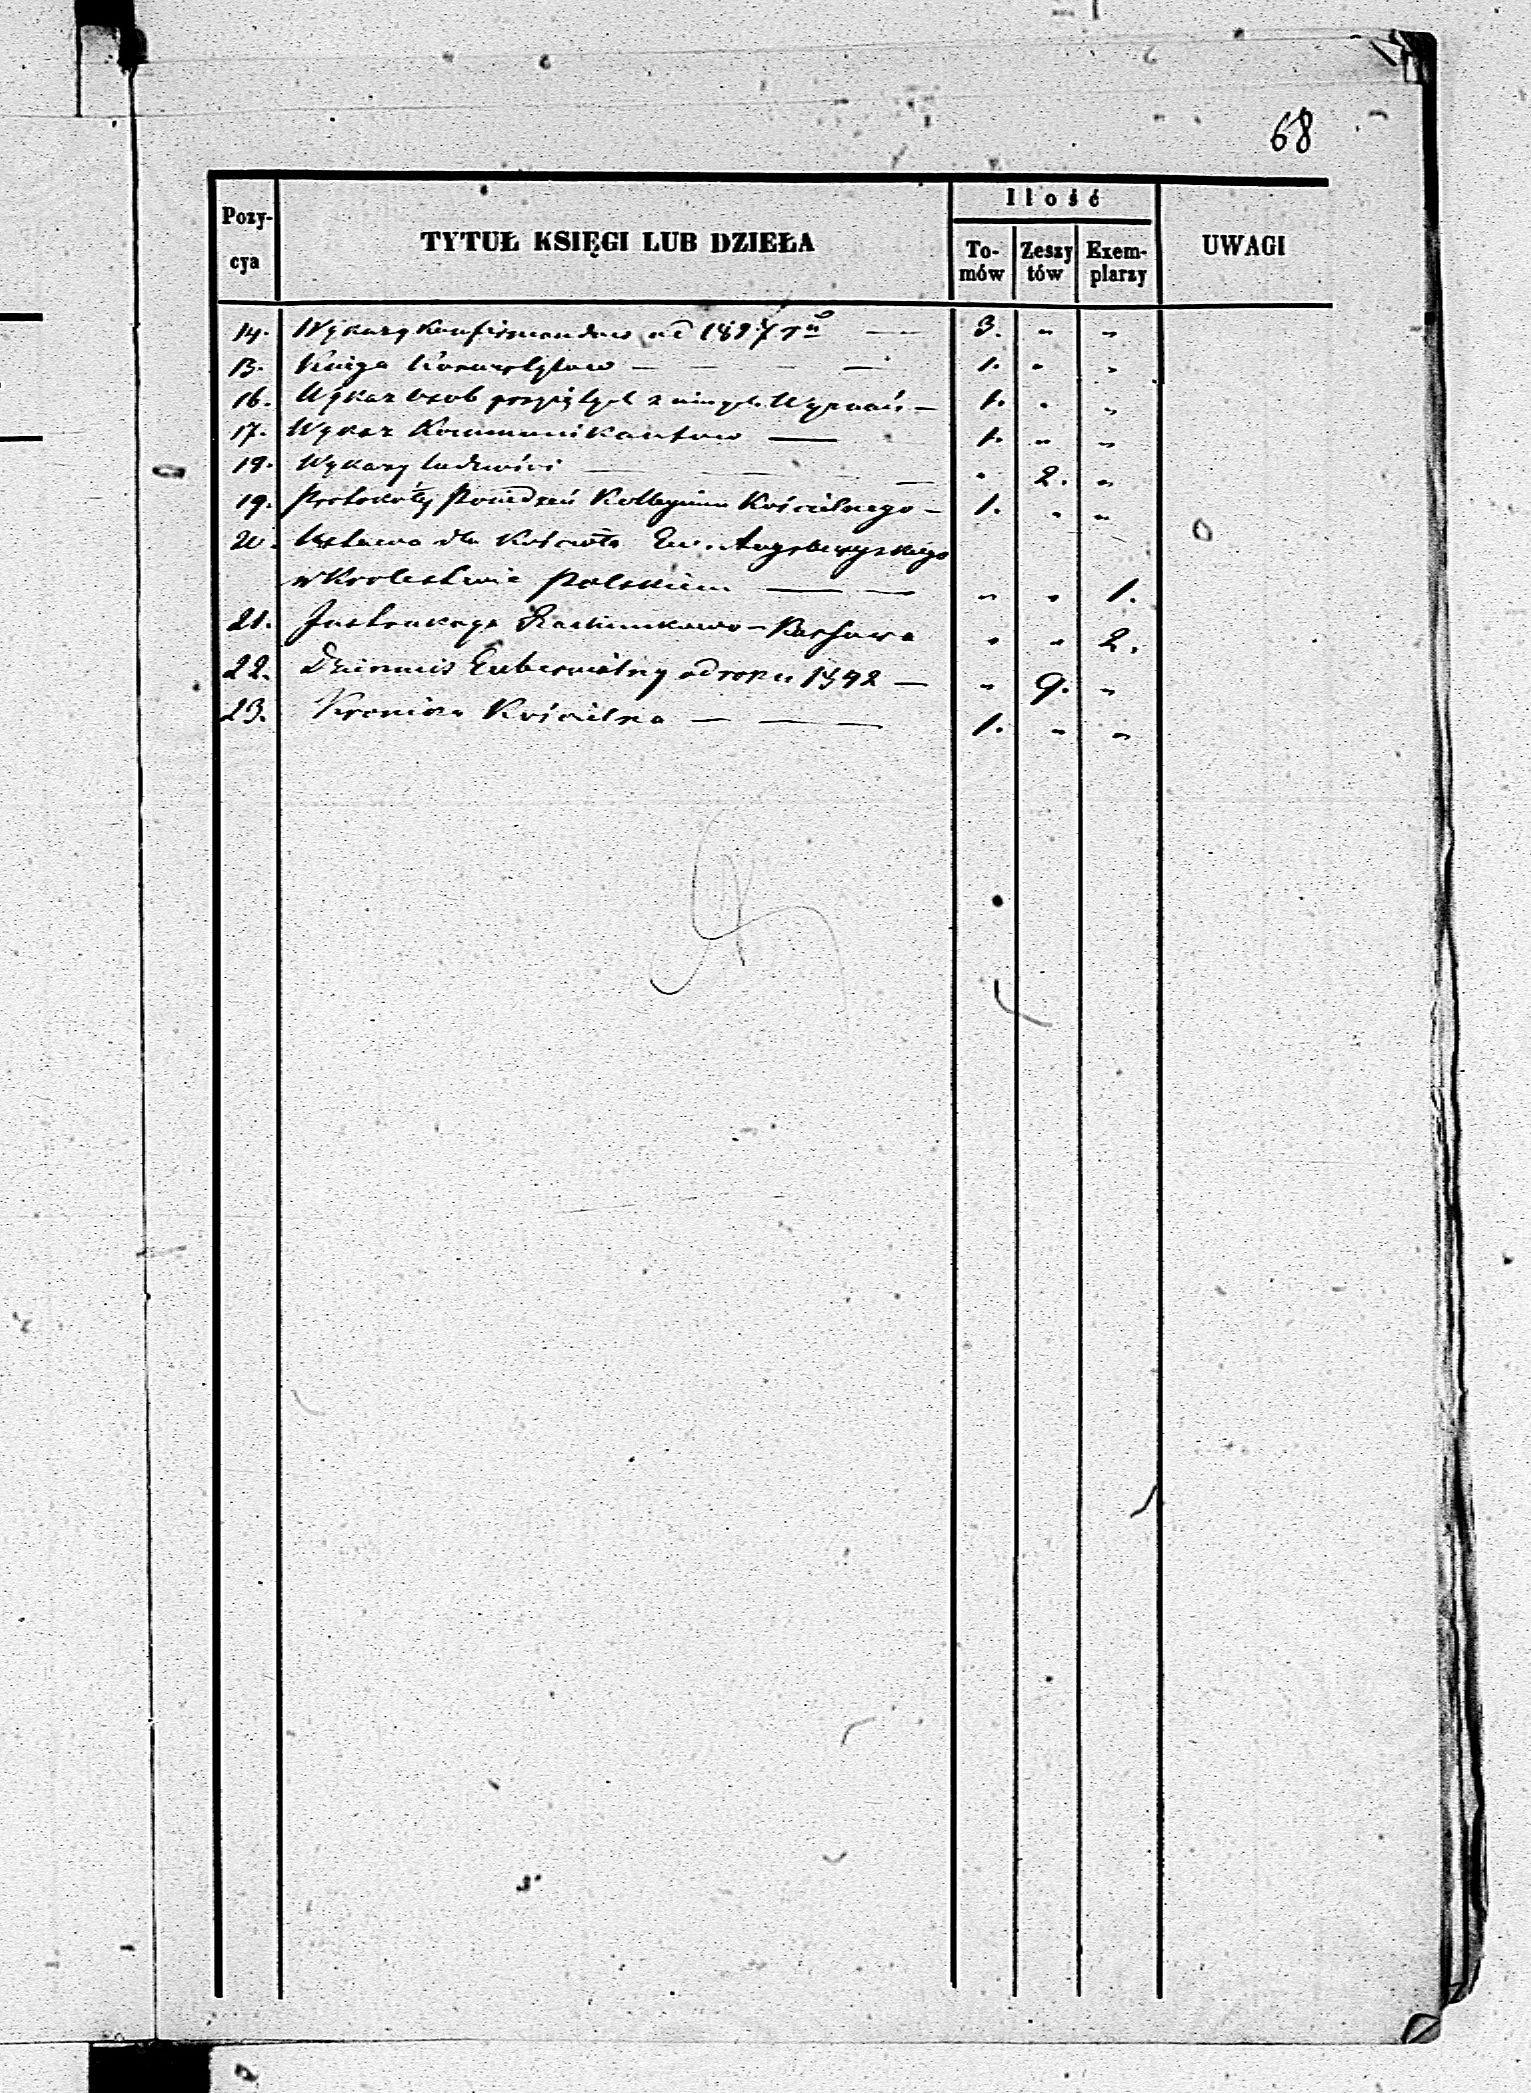 68
Pozy-
cya
TYTUŁ KSIĘGI LUB DZIEŁA
Ilość
To-
mów
Zeszy
tów
Exem-
plarzy
UWAGI
14. Wykazy Konfirmandów od 1827 r — 3. „ „
15. Księga — — — — 1. „ „
16. Wykaz Osob przyjętych z innych Wyznań — 1. „ „
17. Wykaz Kommunikantow — 1. „ „
18. Wykazy ludności — — — „ 2. „
19. Protokóły Posiedzeń Kollegium Kościelnego — 1. „ „
20. Ustawa dla Kościoła Ew. Augsburgskiego
w Krolestwie Polskiem — — „ „ 1.
21. Instrukcya Rachunkowo-Kassowa „ „ 2.
22. Dziennik Gubernialny od roku 1842 — „ 9. „
23. Kronika Kościelna — — — 1. „ „